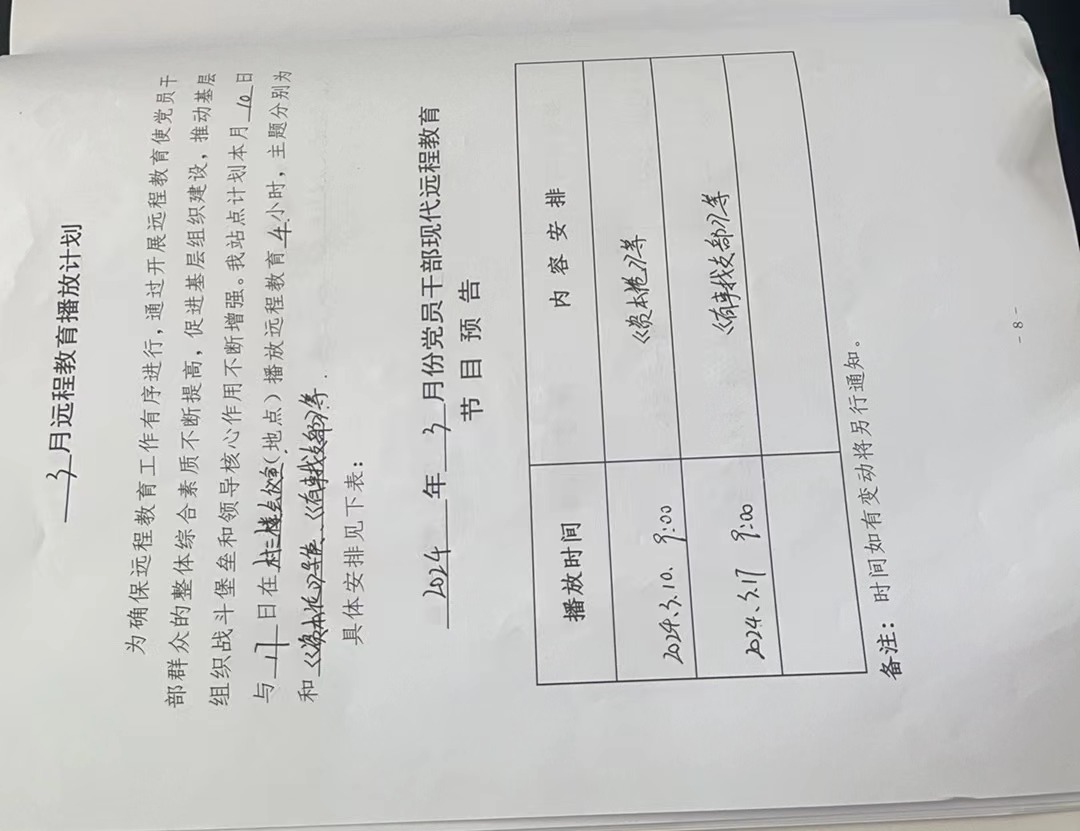 3月远程教育播放计划
为确保远程教育工作有序进行，通过开展远程教育使党员干
部群众的整体综合素质不断提高，促进基层组织建设，推动基层
组织战斗堡垒和领导核心作用不断增强。我站点计划本月10日
与17日在村三楼会议室（地点）播放远程教育4小时，主题分别为
和
具体安排见下表：
2024年3月份党员干部现代远程教育
节目预告
播放时间 内容安排
2024.3.10. 9:00 《资本
2024.3.17 9:00 支部
备注：时间如有变动将另行通知。
- 8 -